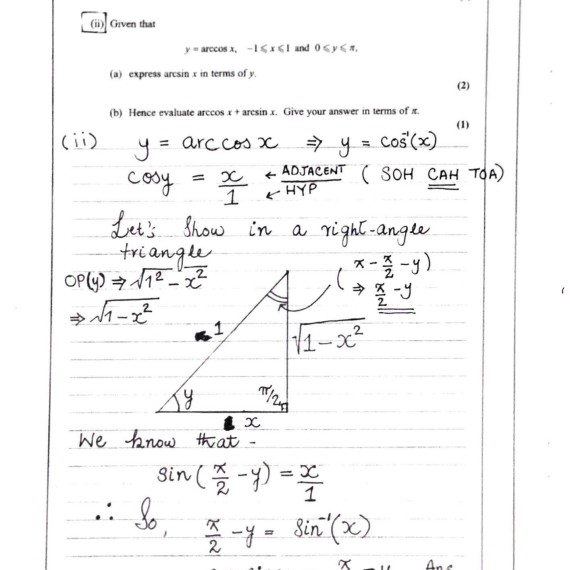 (ii) Given that
y = arccos x, −1 ⩽ x ⩽ 1 and 0 ⩽ y ⩽ π,
(a) express arcsin x in terms of y.
(2)
(b) Hence evaluate arccos x + arcsin x. Give your answer in terms of π.
(1)
(ii) y = arccosx ⇒ y = cos⁻¹(x)
cosy = x/1 ← ADJACENT / ← HYP ( SOH CAH TOA)
Let's show in a right-angle
triangle
OP(y) ⇒ √1² − x²
⇒ √1−x²
(π − π/2 − y)
⇒ π/2 − y
1
√1−x²
y
π/2
x
We know that -
sin(π/2 − y) = x/1
∴ So, π/2 − y = sin⁻¹(x)
π/2 − y Ans